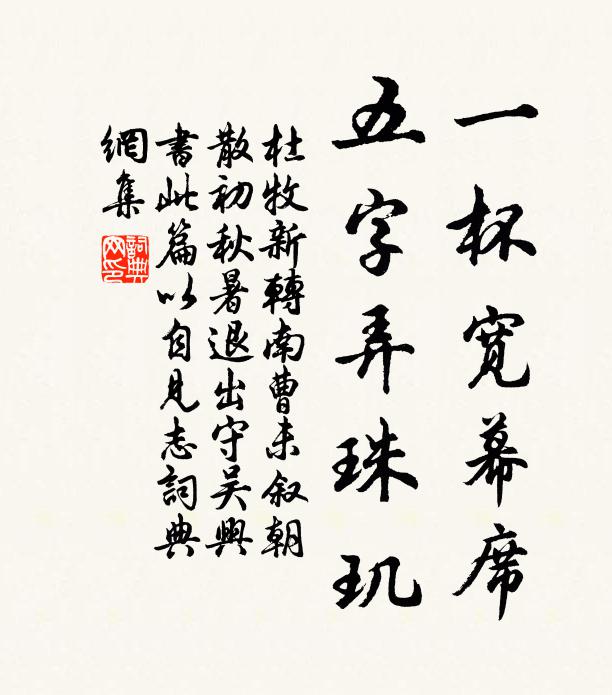 一杯寬幕席
五字弄珠玑
杜牧新轉南曹未叙朝
散初秋暑退出守吴興
書此篇以自見志詞典
網集
詞典
网印